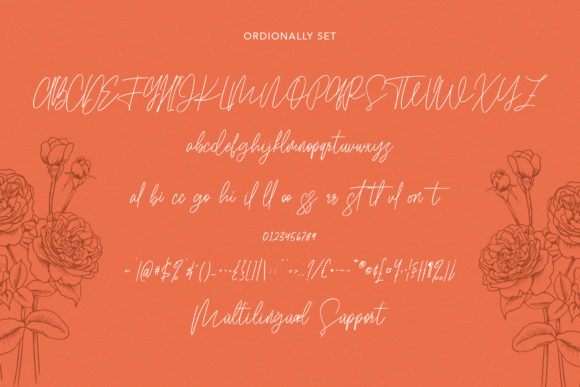 ORDIONALLY SET
ABCDEFGHIJKLMNOPQRSTUVWXYZ
abcdefghijklmnopqrstuvwxyz
al bi cc go hi il ll oo ss rr st tl ul on t
0123456789
Multilingual Support